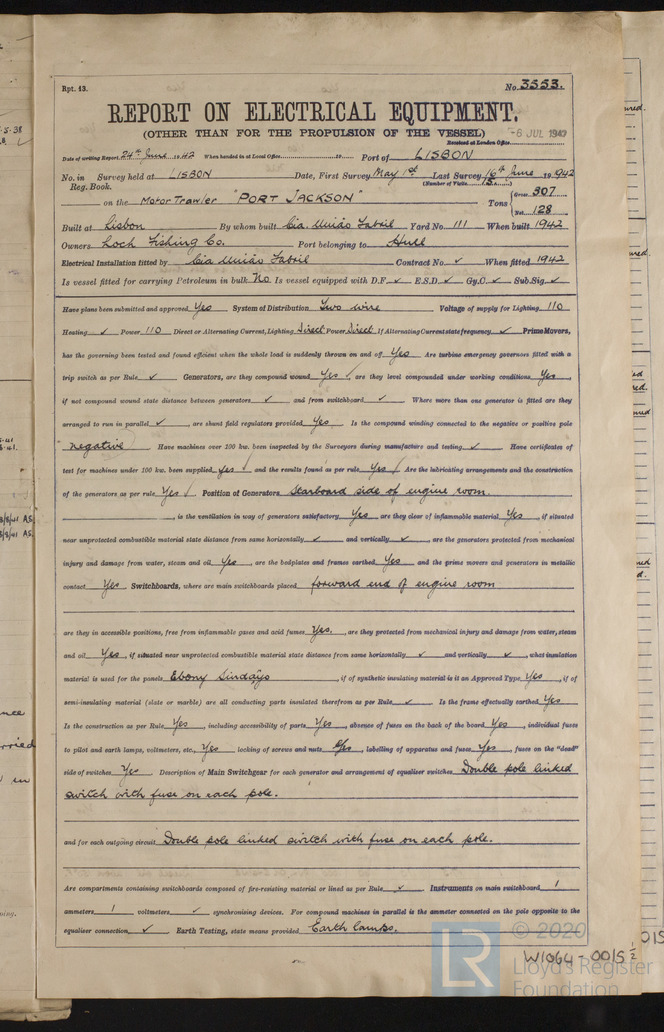 Rpt. 13.
No. 3553.
REPORT ON ELECTRICAL EQUIPMENT.
(OTHER THAN FOR THE PROPULSION OF THE VESSEL)
-6 JUL 1942
Received at London Office
Date of writing Report 24th June 1942 When handed in at Local Office 19 Port of LISBON
No. in Survey held at LISBON Date, First Survey May 1st Last Survey 16th June 1942
Reg. Book. (Number of Visits 15.)
on the Motor Trawler "PORT JACKSON" Tons { Gross 307
Net 128
Built at Lisbon By whom built Cia. União Fabril Yard No. 111 When built 1942
Owners Loch Fishing Co. Port belonging to Hull
Electrical Installation fitted by Cia União Fabril Contract No. ✓ When fitted 1942
Is vessel fitted for carrying Petroleum in bulk No. Is vessel equipped with D.F. ✓ E.S.D. ✓ Gy.C. ✓ Sub.Sig. ✓
Have plans been submitted and approved Yes System of Distribution Two wire Voltage of supply for Lighting 110
Heating ✓ Power 110 Direct or Alternating Current, Lighting Direct Power Direct If Alternating Current state frequency ✓ Prime Movers,
has the governing been tested and found efficient when the whole load is suddenly thrown on and off Yes Are turbine emergency governors fitted with a
trip switch as per Rule ✓ Generators, are they compound wound Yes ✓, are they level compounded under working conditions Yes,
if not compound wound state distance between generators ✓ and from switchboard ✓ Where more than one generator is fitted are they
arranged to run in parallel ✓, are shunt field regulators provided Yes Is the compound winding connected to the negative or positive pole
negative Have machines over 100 kw. been inspected by the Surveyors during manufacture and testing ✓ Have certificates of
test for machines under 100 kw. been supplied yes ✓ and the results found as per rule Yes ✓ Are the lubricating arrangements and the construction
of the generators as per rule Yes ✓. Position of Generators Starboard side of engine room.
, is the ventilation in way of generators satisfactory Yes are they clear of inflammable material Yes, if situated
near unprotected combustible material state distance from same horizontally ✓ and vertically ✓, are the generators protected from mechanical
injury and damage from water, steam and oil Yes, are the bedplates and frames earthed Yes and the prime movers and generators in metallic
contact Yes. Switchboards, where are main switchboards placed forward end of engine room
are they in accessible positions, free from inflammable gases and acid fumes Yes., are they protected from mechanical injury and damage from water, steam
and oil Yes, if situated near unprotected combustible material state distance from same horizontally ✓ and vertically ✓, what insulation
material is used for the panels Ebony Sindanyo, if of synthetic insulating material is it an Approved Type Yes, if of
semi-insulating material (slate or marble) are all conducting parts insulated therefrom as per Rule ✓ Is the frame effectually earthed Yes
Is the construction as per Rule Yes, including accessibility of parts Yes, absence of fuses on the back of the board Yes, individual fuses
to pilot and earth lamps, voltmeters, etc., Yes locking of screws and nuts Yes, labelling of apparatus and fuses Yes, fuses on the "dead"
side of switches Yes Description of Main Switchgear for each generator and arrangement of equaliser switches Double pole linked
switch with fuse on each pole.
and for each outgoing circuit Double pole linked switch with fuse on each pole.
Are compartments containing switchboards composed of fire-resisting material or lined as per Rule ✓ Instruments on main switchboard 1
ammeters 1 voltmeters ✓ synchronising devices. For compound machines in parallel is the ammeter connected on the pole opposite to the
equaliser connection ✓ Earth Testing, state means provided Earth lamps.
© 2020
LR
Lloyd's Register
Foundation
W1064-0015 1/2